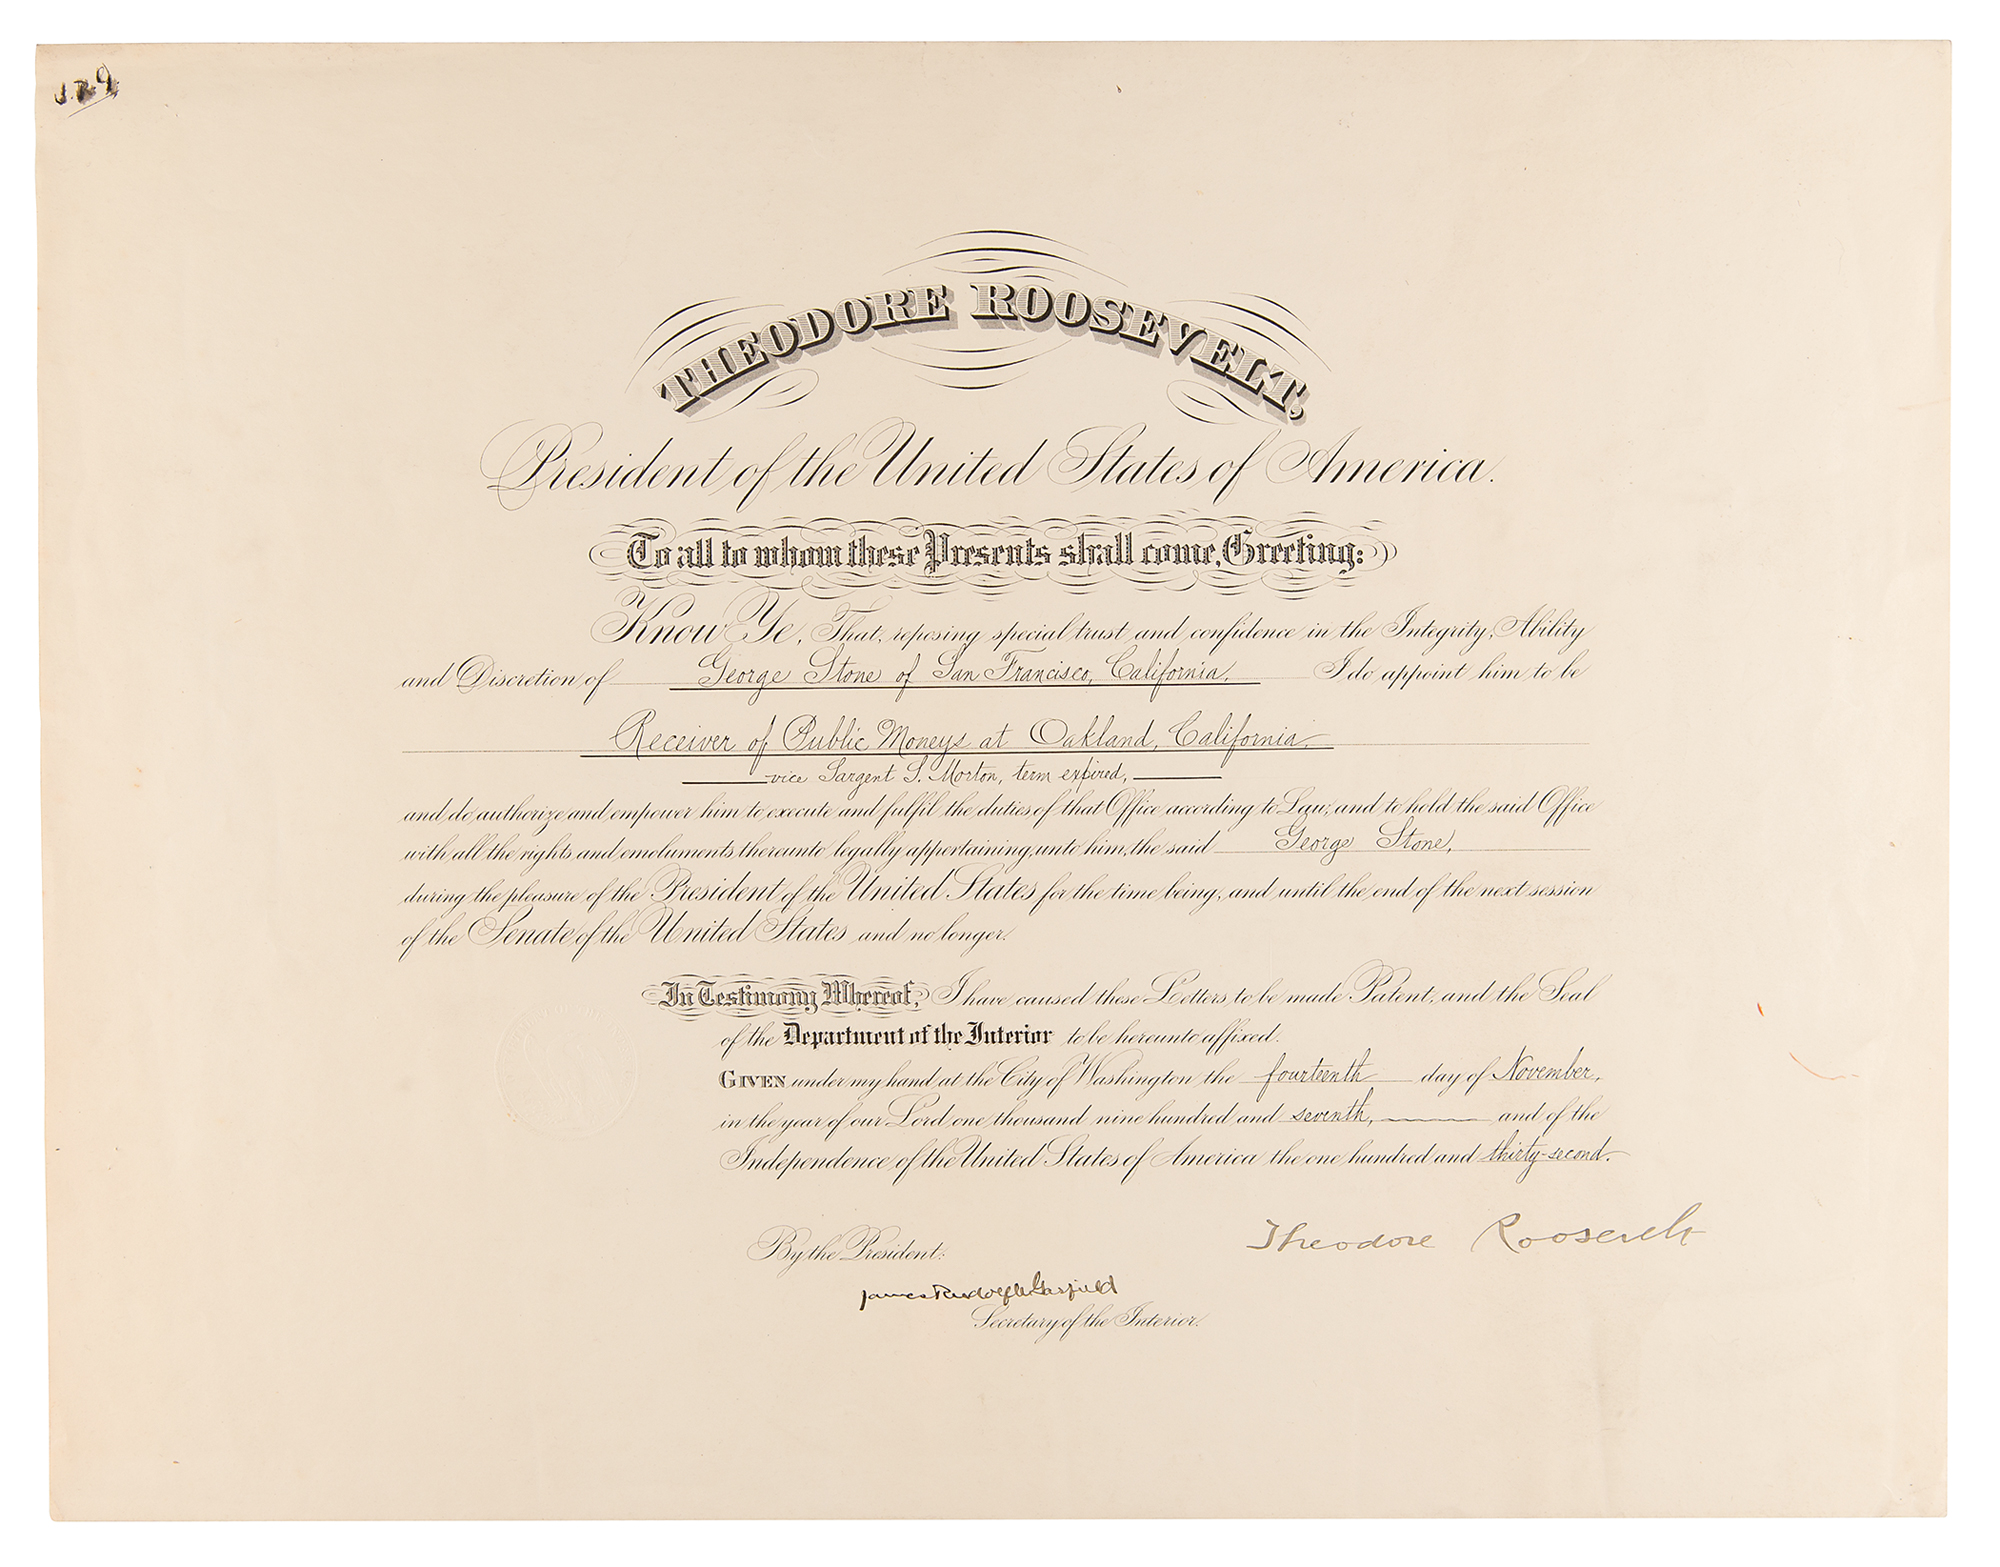 J.R.G.
THEODORE ROOSEVELT,
President of the United States of America.
To all to whom these Presents shall come, Greeting:
Know Ye, That, reposing special trust and confidence in the Integrity, Ability
and Discretion of George Stone of San Francisco, California, I do appoint him to be
Receiver of Public Moneys at Oakland, California,
vice Sargent S. Morton, term expired,
and do authorize and empower him to execute and fulfil the duties of that Office according to Law, and to hold the said Office
with all the rights and emoluments thereunto legally appertaining, unto him, the said George Stone,
during the pleasure of the President of the United States for the time being, and until the end of the next session
of the Senate of the United States and no longer.
In Testimony Whereof, I have caused these Letters to be made Patent, and the Seal
of the Department of the Interior to be hereunto affixed.
GIVEN under my hand at the City of Washington the fourteenth day of November,
in the year of our Lord one thousand nine hundred and seventh, and of the
Independence of the United States of America the one hundred and thirty-second.
Theodore Roosevelt
By the President:
James Rudolph Garfield
Secretary of the Interior.